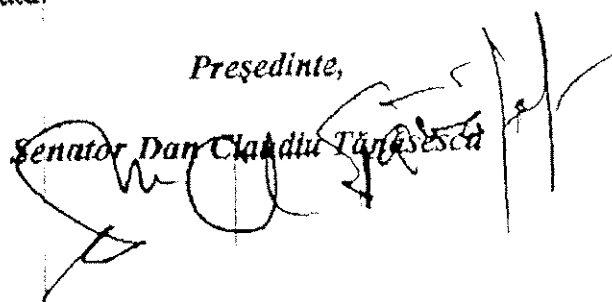 Președinte,
Senator Dan Claudiu Tănăsescu